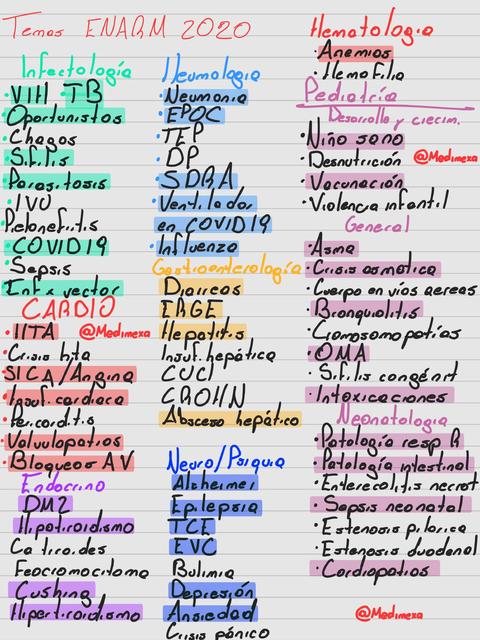 Temas ENARM 2020
Infectología
• VIH TB
Oportunistas
• Chagas
• Sífilis
Parasitosis
• IVU
Pielonefritis
• COVID19
• Sepsis
Enf x vector
CARDIO
• HTA @Medimexa
• Crisis hta
SICA/Angina
• Insuf. cardiaca
Pericarditis
• Valvulopatias
• Bloqueos AV
Endocrino
DM2
Hipotiroidismo
Ca tiroides
Feocromocitoma
Cushing
Hipertiroidismo
Neumologia
• Neumonia
• EPOC
• TEP
• DP
• SDRA
Ventilador
en COVID19
• Influenza
Gastroenterología
Diarreas
ERGE
Hepatitis
Insuf. hepática
CUCI
CROHN
Absceso hepático
Neuro/Psiquia
Alzheimer
Epilepsia
TCE
EVC
Bulimia
Depresión
Ansiedad
Crisis pánico
Hematologia
• Anemias
• Hemofilia
Pediatría
Desarrollo y crecim.
• Niño sano
• Desnutrición @Medimexa
• Vacunación
• Violencia infantil
General
• Asma
• Crisis asmatica
• Cuerpo en vios aereas
• Bronquiolitis
• Cromosomopatías
• OMA
• Sífilis congénit
• Intoxicaciones
Neonatologia
• Patología resp R
• Patología intestinal
• Enterecolitis necrot
• Sepsis neonatal
• Estenosis pilorica
• Estenosis duodenal
• Cardiopatios
@Medimexa